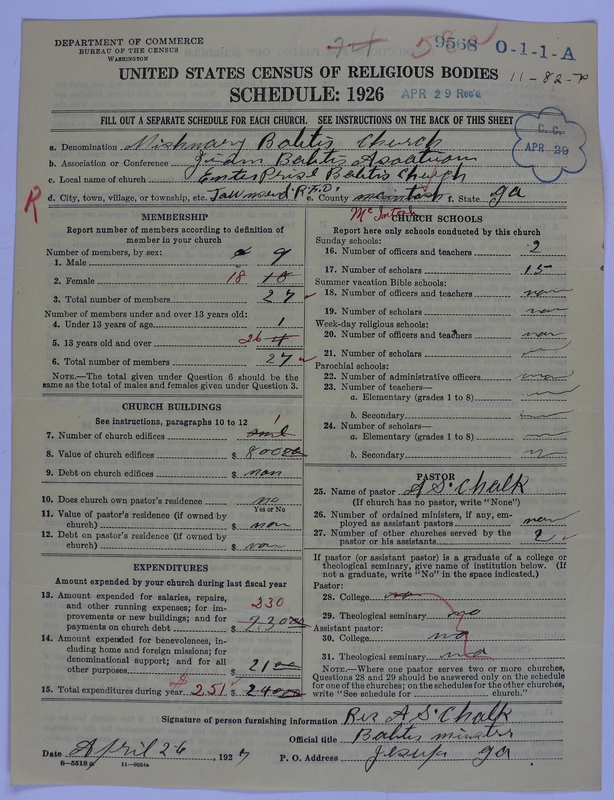 DEPARTMENT OF COMMERCE
BUREAU OF THE CENSUS
WASHINGTON
9568 0-1-1-A
UNITED STATES CENSUS OF RELIGIOUS BODIES
11-82-
SCHEDULE: 1926
APR 29 Rec'd
FILL OUT A SEPARATE SCHEDULE FOR EACH CHURCH. SEE INSTRUCTIONS ON THE BACK OF THIS SHEET
C. C.
APR 29
a. Denomination Mishnary Babtis Church
b. Association or Conference Babtis Asoation
c. Local name of church Enterprise Babtis Church
d. City, town, village, or township, etc. Tawnsend R.F.D. e. County McIntosh f. State Ga
R
MEMBERSHIP
Report number of members according to definition of member in your church
Number of members, by sex:
1. Male 9
2. Female 18 18
3. Total number of members 27
Number of members under and over 13 years old:
4. Under 13 years of age 1
5. 13 years old and over 26
6. Total number of members 27
NOTE.—The total given under Question 6 should be the
same as the total of males and females given under Question 3.
CHURCH BUILDINGS
See instructions, paragraphs 10 to 12
7. Number of church edifices 1
8. Value of church edifices $ 800 00
9. Debt on church edifices $ non
10. Does church own pastor's residence no
Yes or No
11. Value of pastor's residence (if owned by
church) $ non
12. Debt on pastor's residence (if owned by
church) $ non
EXPENDITURES
Amount expended by your church during last fiscal year
13. Amount expended for salaries, repairs,
and other running expenses; for im-
provements or new buildings; and for
payments on church debt $ 230
14. Amount expended for benevolences, in-
cluding home and foreign missions; for
denominational support; and for all
other purposes $ 21 00
15. Total expenditures during year $ 251 $
CHURCH SCHOOLS
Report here only schools conducted by this church
Sunday schools:
16. Number of officers and teachers 2
17. Number of scholars 15
Summer vacation Bible schools:
18. Number of officers and teachers non
19. Number of scholars non
Week-day religious schools:
20. Number of officers and teachers non
21. Number of scholars
Parochial schools:
22. Number of administrative officers
23. Number of teachers—
a. Elementary (grades 1 to 8)
b. Secondary
24. Number of scholars—
a. Elementary (grades 1 to 8)
b. Secondary
PASTOR
25. Name of pastor A S. Chalk
(If church has no pastor, write "None")
26. Number of ordained ministers, if any, em-
ployed as assistant pastors non
27. Number of other churches served by the
pastor or his assistants 2
If pastor (or assistant pastor) is a graduate of a college or
theological seminary, give name of institution below. (If
not a graduate, write "No" in the space indicated.)
Pastor:
28. College no
29. Theological seminary no
Assistant pastor:
30. College no
31. Theological seminary no
NOTE.—Where one pastor serves two or more churches,
Questions 28 and 29 should be answered only on the schedule
for one of the churches; on the schedules for the other churches,
write "See schedule for church."
Signature of person furnishing information Rev A S. Chalk
Official title Babtis minister
Date April 26, 1927 P. O. Address Jesup Ga
8-5518a 11-9054a